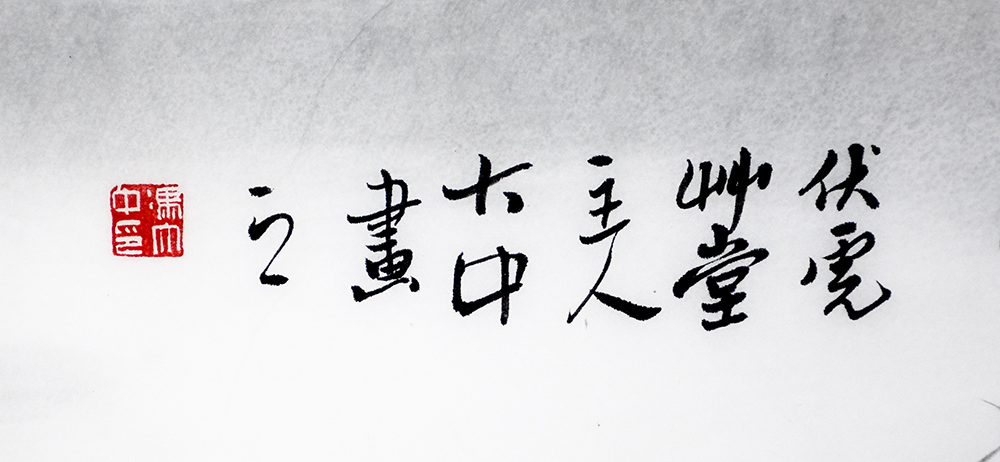 伏虎
艸堂
主人
大中
畫
之
大中印